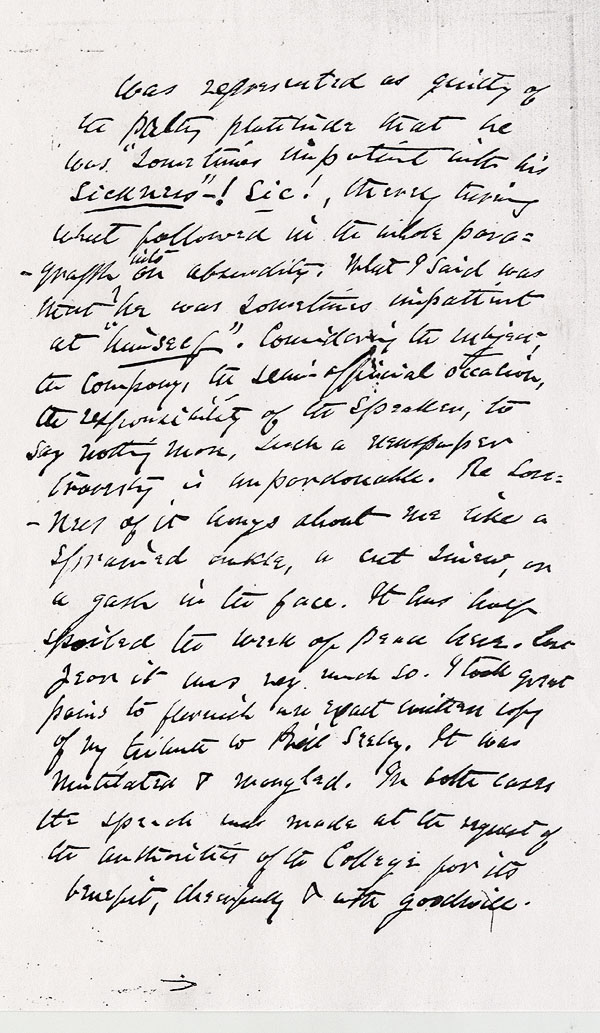 was represented as guilty of
the paltry platitude that he
was "sometimes impatient with his
sickness"-! Sic!, thereby turning
what followed in the whole para=
-graph into an absurdity. What I said was
that he was sometimes impatient
at "himself". Considering the subject,
the company, the semi-official occasion,
the responsibility of the speaker, to
say nothing more, such a newspaper
travesty is unpardonable. The
-ness of it hangs about me like a
sprained ankle, a cut sinew, or
a gash in the face. It has half
spoiled the week of peace here. Last
year it was very much so. I took great
pains to furnish an exact written copy
of my tribute to Seelye. It was
mutilated & mangled. In both cases
the speech was made at the request of
the authorities of the College for its
benefit, cheerfully & with goodwill.